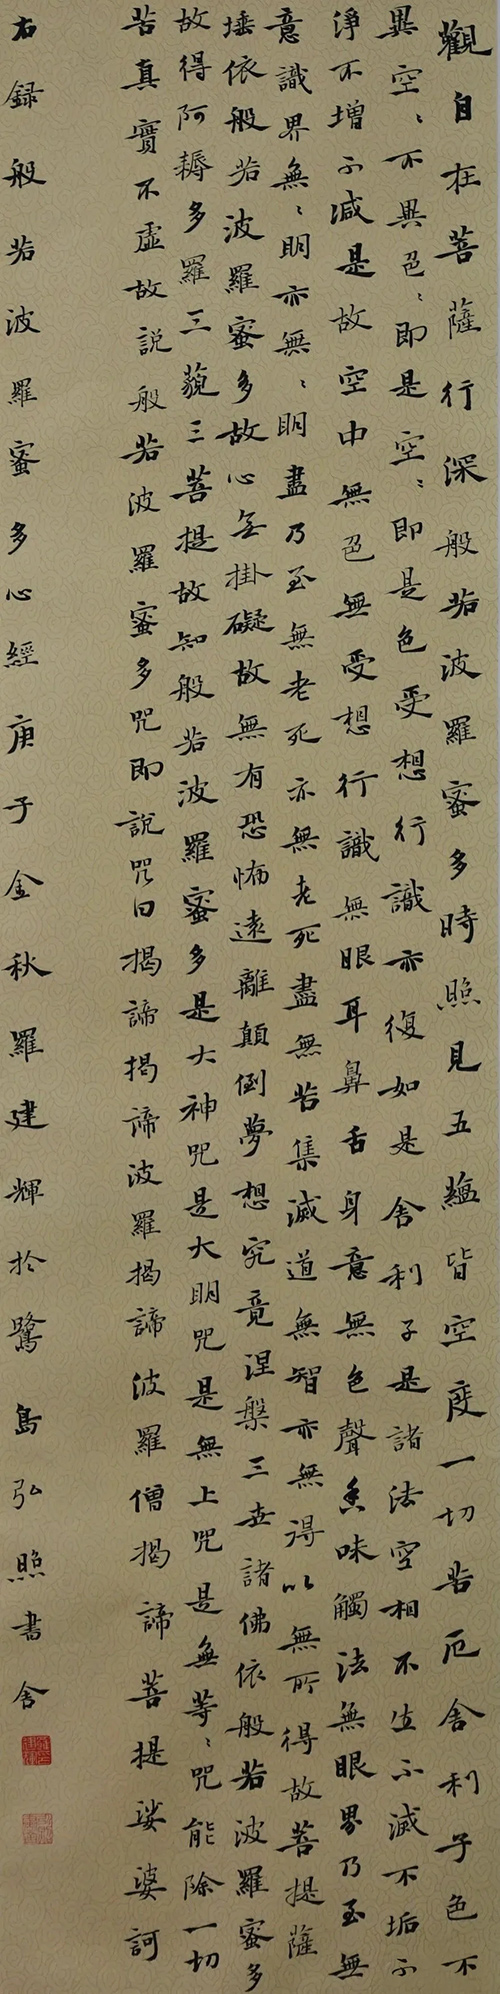 觀自在菩薩行深般若波羅蜜多時照見五蘊皆空度一切苦厄舍利子色不
異空〻不異色〻即是空〻即是色受想行識亦復如是舍利子是諸法空相不生不滅不垢不
淨不增不減是故空中無色無受想行識無眼耳鼻舌身意無色聲香味觸法無眼界乃至無
意識界無〻明亦無〻明盡乃至無老死亦無老死盡無苦集滅道無智亦無得以無所得故菩提薩
埵依般若波羅蜜多故心無掛礙故無有恐怖遠離顛倒夢想究竟涅槃三世諸佛依般若波羅蜜多
故得阿耨多羅三藐三菩提故知般若波羅蜜多是大神咒是大明咒是無上咒是無等〻咒能除一切
苦真實不虛故說般若波羅蜜多咒即說咒曰揭諦揭諦波羅揭諦波羅僧揭諦菩提娑婆訶
右録般若波羅蜜多心經庚子金秋羅建輝於鷺島弘照書舍